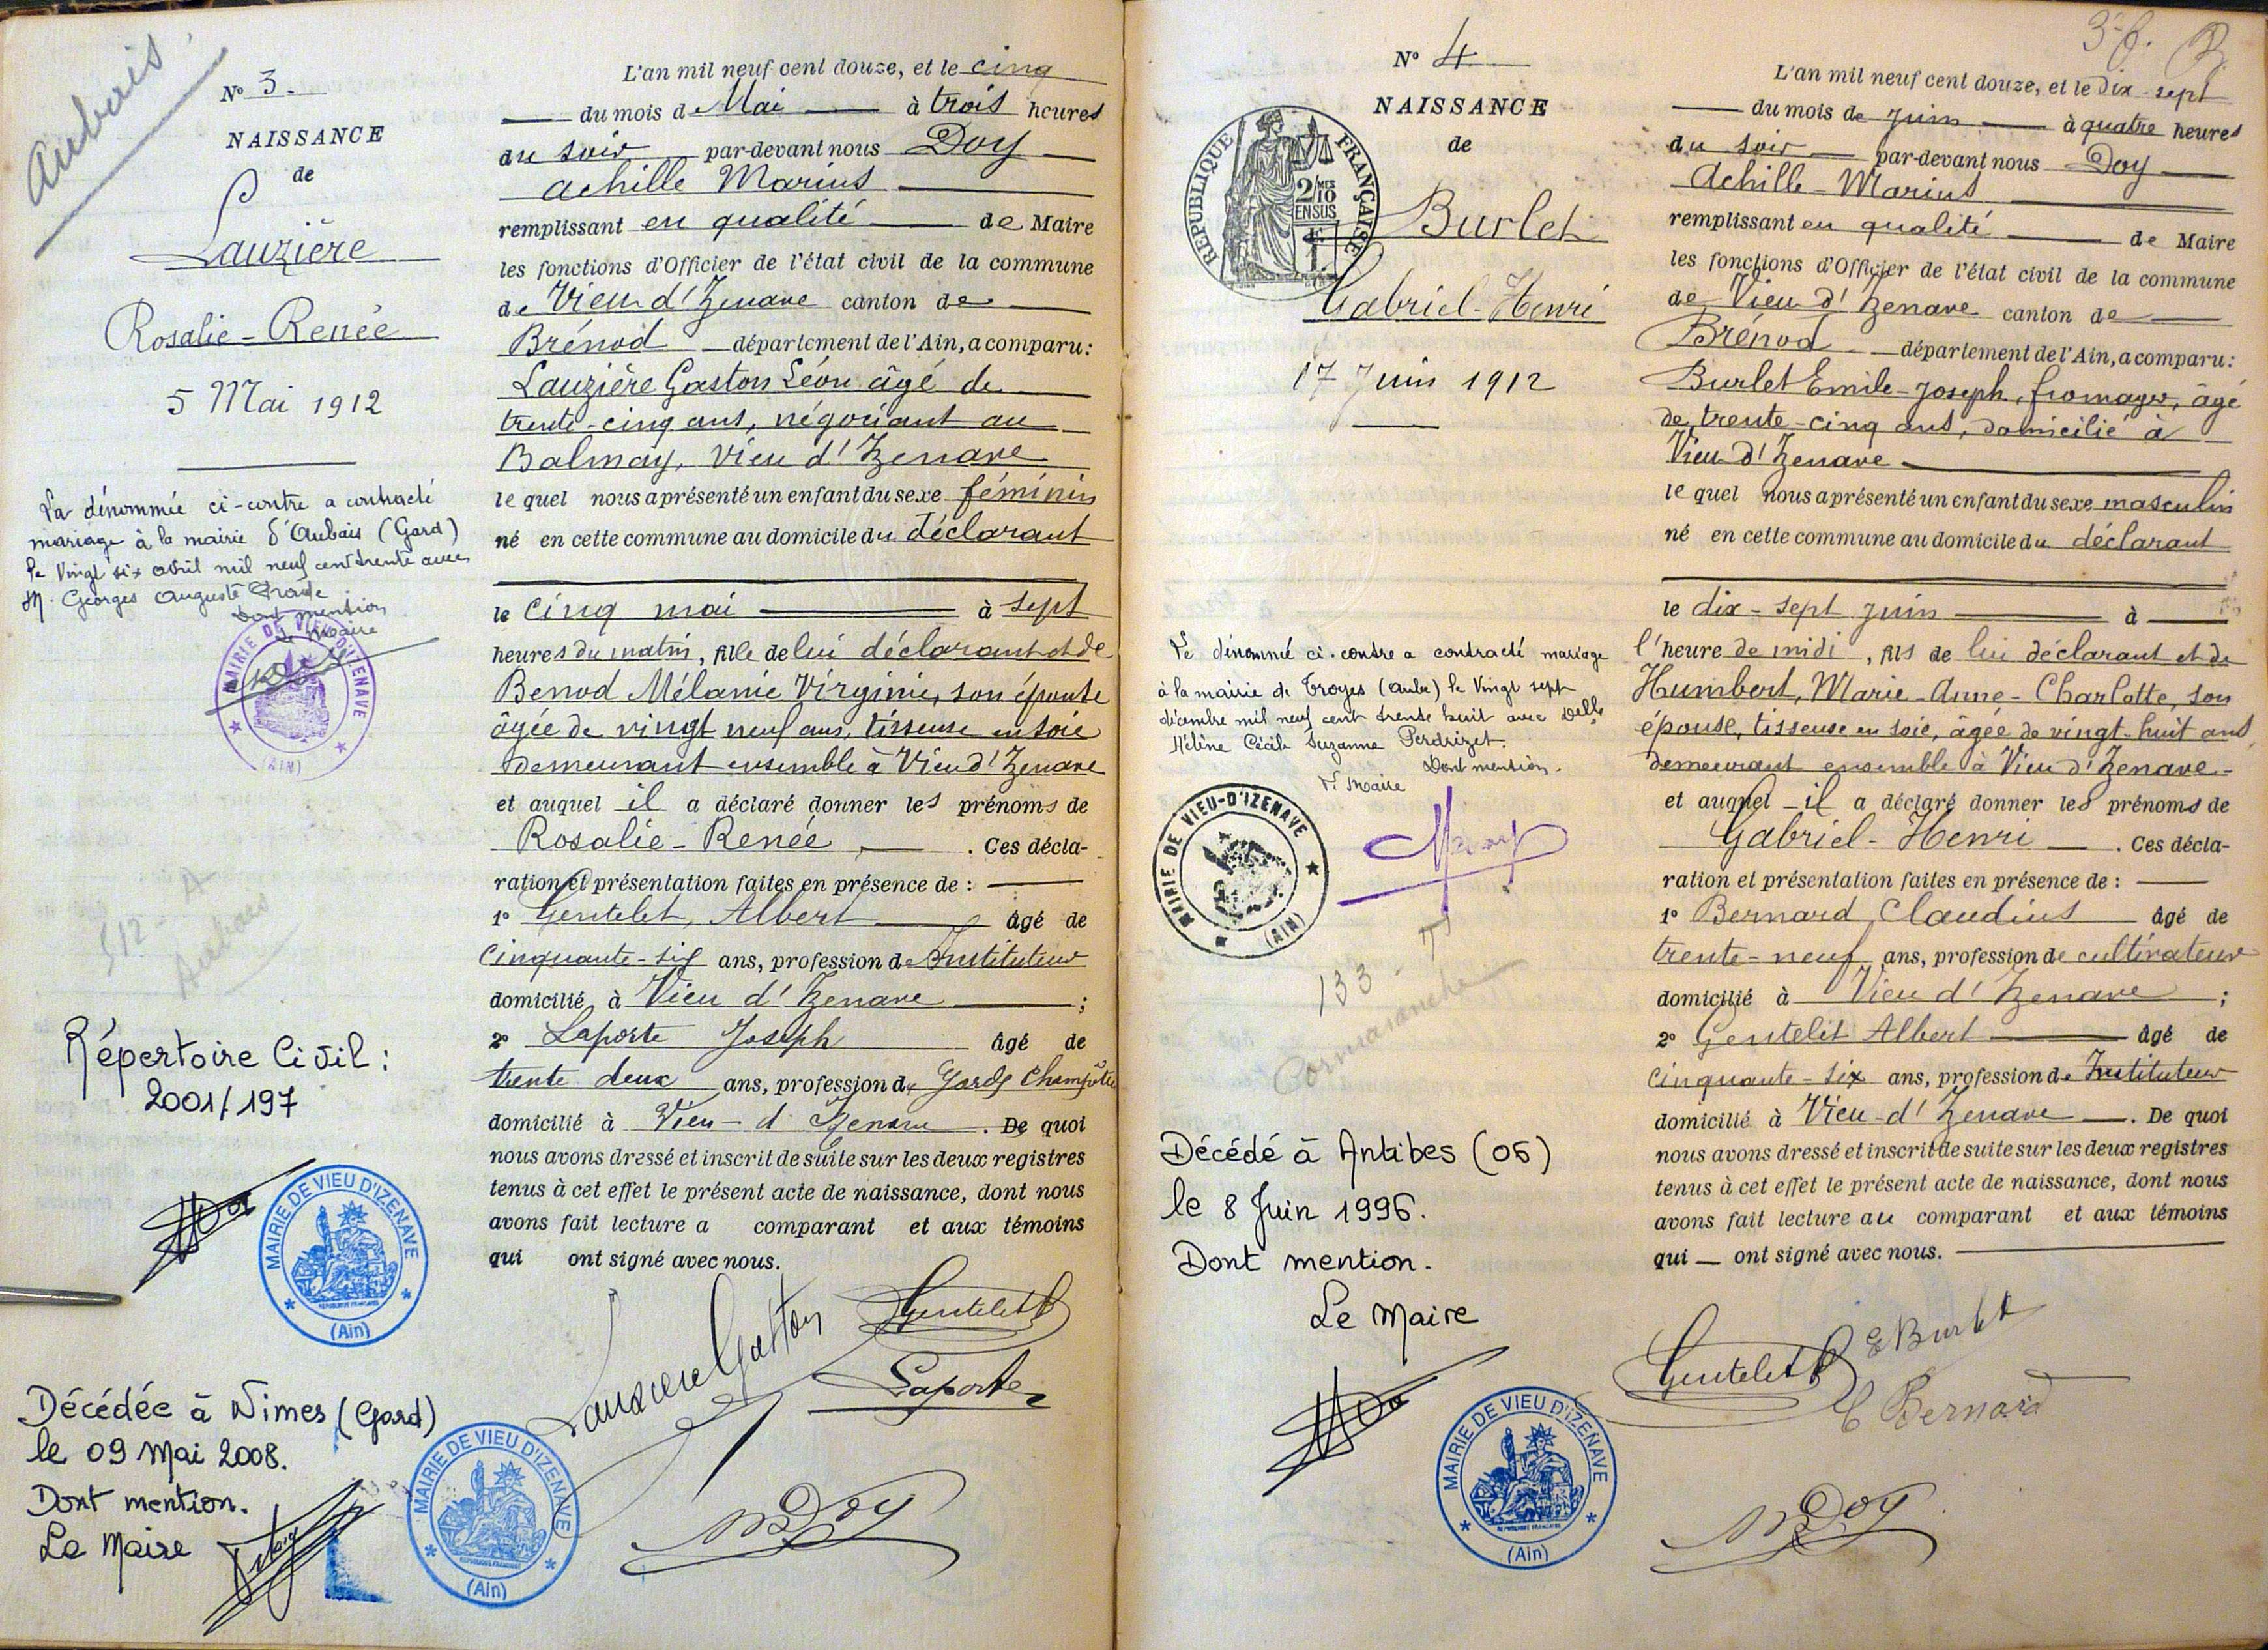 Aubais
N° 3.
NAISSANCE
de
Lauzière
Rosalie-Renée
5 Mai 1912
La dénommée ci-contre a contracté
mariage à la mairie d'Aubais (Gard)
le Vingt six avril mil neuf cent trente avec
M. Georges Auguste
Dont mention
Le Maire
MAIRIE DE VIEU-D'IZENAVE
(AIN)
512 - A
Aubais
Répertoire Civil :
2001/197
MAIRIE DE VIEU D'IZENAVE
(Ain)
Décédée à Nimes (Gard)
le 09 Mai 2008.
Dont mention.
Le Maire
MAIRIE DE VIEU D'IZENAVE
(Ain)
L'an mil neuf cent douze, et le cinq
du mois de Mai à trois heures
du soir par-devant nous Doy
Achille Marius
remplissant en qualité de Maire
les fonctions d'Officier de l'état civil de la commune
de Vieu d'Izenave canton de
Brénod département de l'Ain, a comparu :
Lauzière Gaston Léon âgé de
trente-cinq ans, négociant au
Balmay, Vieu d'Izenave
le quel nous a présenté un enfant du sexe féminin
né en cette commune au domicile du déclarant
le cinq mai à sept
heures du matin, fille de lui déclarant et de
Benod Mélanie Virginie, son épouse
âgée de vingt neuf ans, tisseuse en soie
demeurant ensemble à Vieu d'Izenave
et auquel il a déclaré donner les prénoms de
Rosalie-Renée . Ces décla-
ration et présentation faites en présence de :
1° Gentelet, Albert âgé de
cinquante-six ans, profession de Instituteur
domicilié à Vieu d'Izenave ;
2° Laporte Joseph âgé de
trente deux ans, profession de Garde Champêtre
domicilié à Vieu-d'Izenave . De quoi
nous avons dressé et inscrit de suite sur les deux registres
tenus à cet effet le présent acte de naissance, dont nous
avons fait lecture a comparant et aux témoins
qui ont signé avec nous.
Lauziere Gaston
Gentelet
Laporte
Doy
N° 4
NAISSANCE
de
RÉPUBLIQUE FRANÇAISE
2/10 MES
EN SUS
Burlet
Gabriel-Henri
17 Juin 1912
Le dénommé ci-contre a contracté mariage
à la mairie de Troyes (Aube) le Vingt sept
décembre mil neuf cent trente huit avec Delle
Hélène Cécile Suzanne Perdrizet.
Dont mention.
Le Maire
MAIRIE DE VIEU-D'IZENAVE
(AIN)
133 - T
Cormaranche
Décédé à Antibes (06)
le 8 Juin 1996.
Dont mention.
Le Maire
MAIRIE DE VIEU D'IZENAVE
(Ain)
L'an mil neuf cent douze, et le dix-sept
du mois de Juin à quatre heures
du soir par-devant nous Doy
Achille-Marius
remplissant en qualité de Maire
les fonctions d'Officier de l'état civil de la commune
de Vieu d'Izenave canton de
Brénod département de l'Ain, a comparu :
Burlet Emile-Joseph, fromager, âgé
de trente-cinq ans, domicilié à
Vieu d'Izenave
le quel nous a présenté un enfant du sexe masculin
né en cette commune au domicile du déclarant
le dix-sept juin à
l'heure de midi, fils de lui déclarant et de
Humbert, Marie-Anne-Charlotte, son
épouse, tisseuse en soie, âgée de vingt-huit ans,
demeurant ensemble à Vieu d'Izenave
et auquel il a déclaré donner les prénoms de
Gabriel-Henri . Ces décla-
ration et présentation faites en présence de :
1° Bernard Claudius âgé de
trente-neuf ans, profession de cultivateur
domicilié à Vieu d'Izenave ;
2° Gentelet Albert âgé de
cinquante-six ans, profession de Instituteur
domicilié à Vieu-d'Izenave . De quoi
nous avons dressé et inscrit de suite sur les deux registres
tenus à cet effet le présent acte de naissance, dont nous
avons fait lecture au comparant et aux témoins
qui ont signé avec nous.
Gentelet
E Burlet
C Bernard
Doy